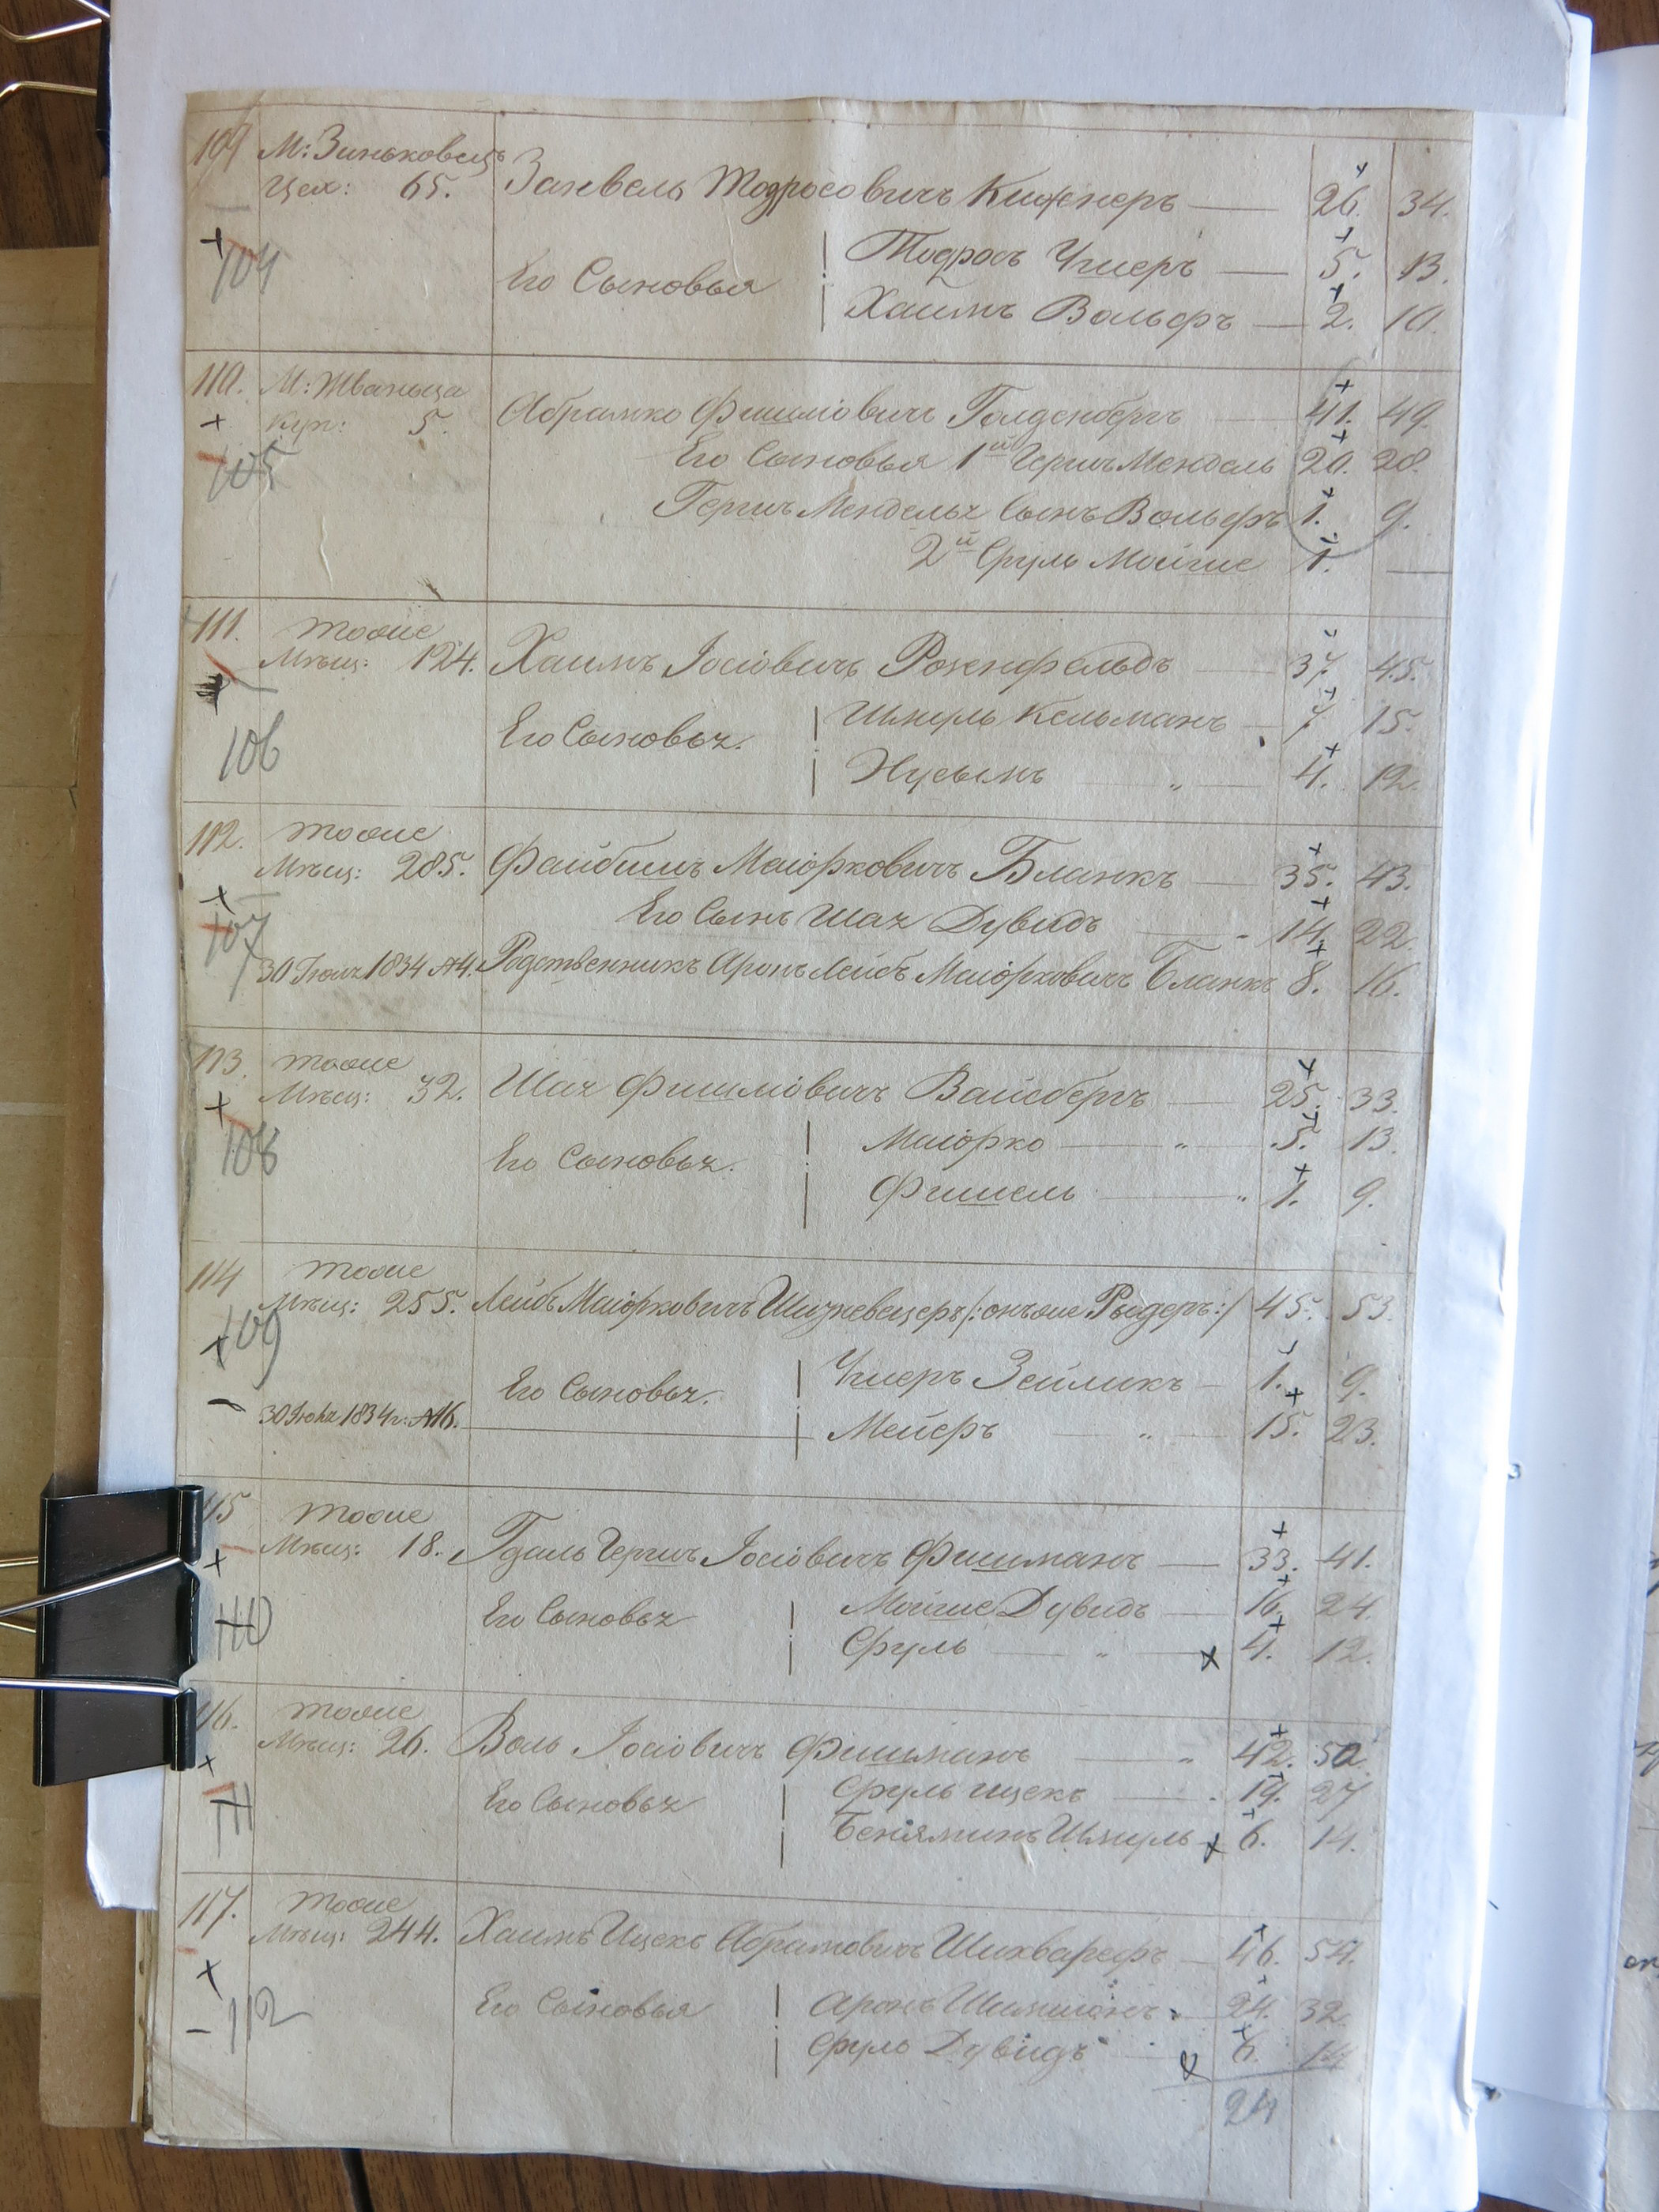 109 М: Зиньковецъ
Цех: 65. Занвель Тодросовичъ Кижнеръ — 26. 34.
104 Его Сыновья Тодросъ Ушеръ — 5. 13.
Хаимъ Вольфъ — 2. 10.
110. М: Жванца
Куп: 5. Абрамко Фишліовичъ Голденбергъ — 41. 49.
105 Его Сыновья 1й Гершъ Мендель 20. 28.
Гершъ Менделя Сынъ Вольфъ 1. 9.
2й Сруль Мойше 1. —
111. тоже
Мѣщ: 124. Хаимъ Іосіовичъ Розенфельдъ — 37 45.
106 Его Сыновья. Шмуль Кельманъ — 7 15.
Нусынъ — „ — 4. 12.
112. тоже
Мѣщ: 285. Файбишъ Маіорковичъ Бланкъ — 35. 43.
107 Его Сынъ Шая Дувидъ — 14. 22.
30 Іюня 1834 №4. Родственникъ Аронъ Лейбъ Маіорковичъ Бланкъ 8. 16.
113. тоже
Мѣщ: 32. Шая Фишліовичъ Вайсбергъ — 25. 33.
108 Его Сыновья. Маіорко — „ — 5. 13.
Фишель — „ 1. 9.
114 тоже
Мѣщ: 255. Лейбъ Маіорковичъ Шизневецеръ /: онъ же Рыдеръ :/ 45. 53.
109 Его Сыновья. Ушеръ Зейликъ — 1. 9.
30 Іюня 1834 г: №16. — Мейеръ — „ — 15. 23.
115 тоже
Мѣщ: 18. Гдаль Гершъ Іосіовичъ Фишманъ — 33. 41.
110 Его Сыновья Мойше Дувидъ — 16. 24.
Сруль — „ — 4. 12.
116. тоже
Мѣщ: 26. Воль Іосіовичъ Фишманъ — „ 42. 50.
111 Его Сыновья Сруль Ицекъ — 19. 27
Беніяминъ Шмуль 6. 14.
117. тоже
Мѣщ: 244. Хаимъ Ицекъ Абрамовичъ Шихварефъ — 46. 54.
112 Его Сыновья Аронъ Шимшонъ — 24. 32.
Сруль Дувидъ 6. 14
24